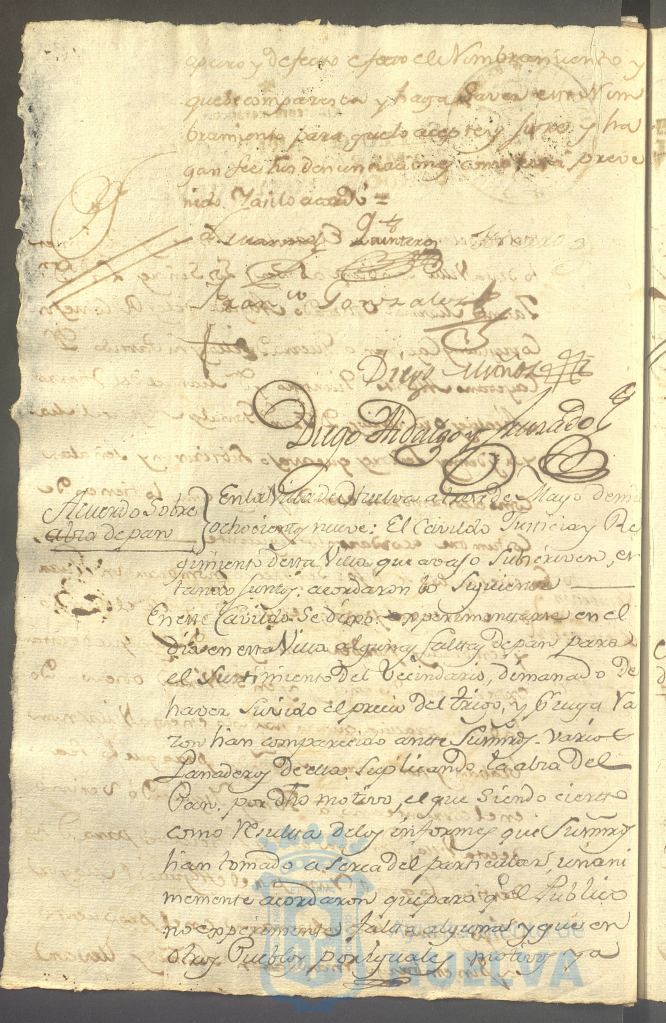 efecto el Nombramiento y
que se comparesca y haga saver este Nom
bramiento para que lo acepte y jure y ha
gan sus denunciaciones como preve
nido. Asi lo acordó =
Quintero
Franco Gonzalez
Diego Muñoz
Diego Hidalgo y Jurado
Acuerdo sobre
alza de pan
En la Villa de Huelva a de Mayo de mil
ochocientos nueve: El Cavildo Justicia y Re
gimiento de esta Villa que avajo subscriven, es
tando juntos, acordaron lo siguiente
En este Cavildo se dixo: experimentarse en el
dia en esta Villa algunas faltas de pan para
el surtimiento del Vecindario, demanado de
haver suvido el precio del trigo, y cuya ra
zon han comparecido ante Sus mrds varios
Panaderos de ella, suplicando la alza del
Pan por dho motivo, el que siendo cierto
como resulta de los informes que Sus mrds
han tomado a serca del particular, unani
memente acordaron que para qe el Publico
no experimente falta alguna y que en
otros Pueblos por iguales motivos ya
HUELVA